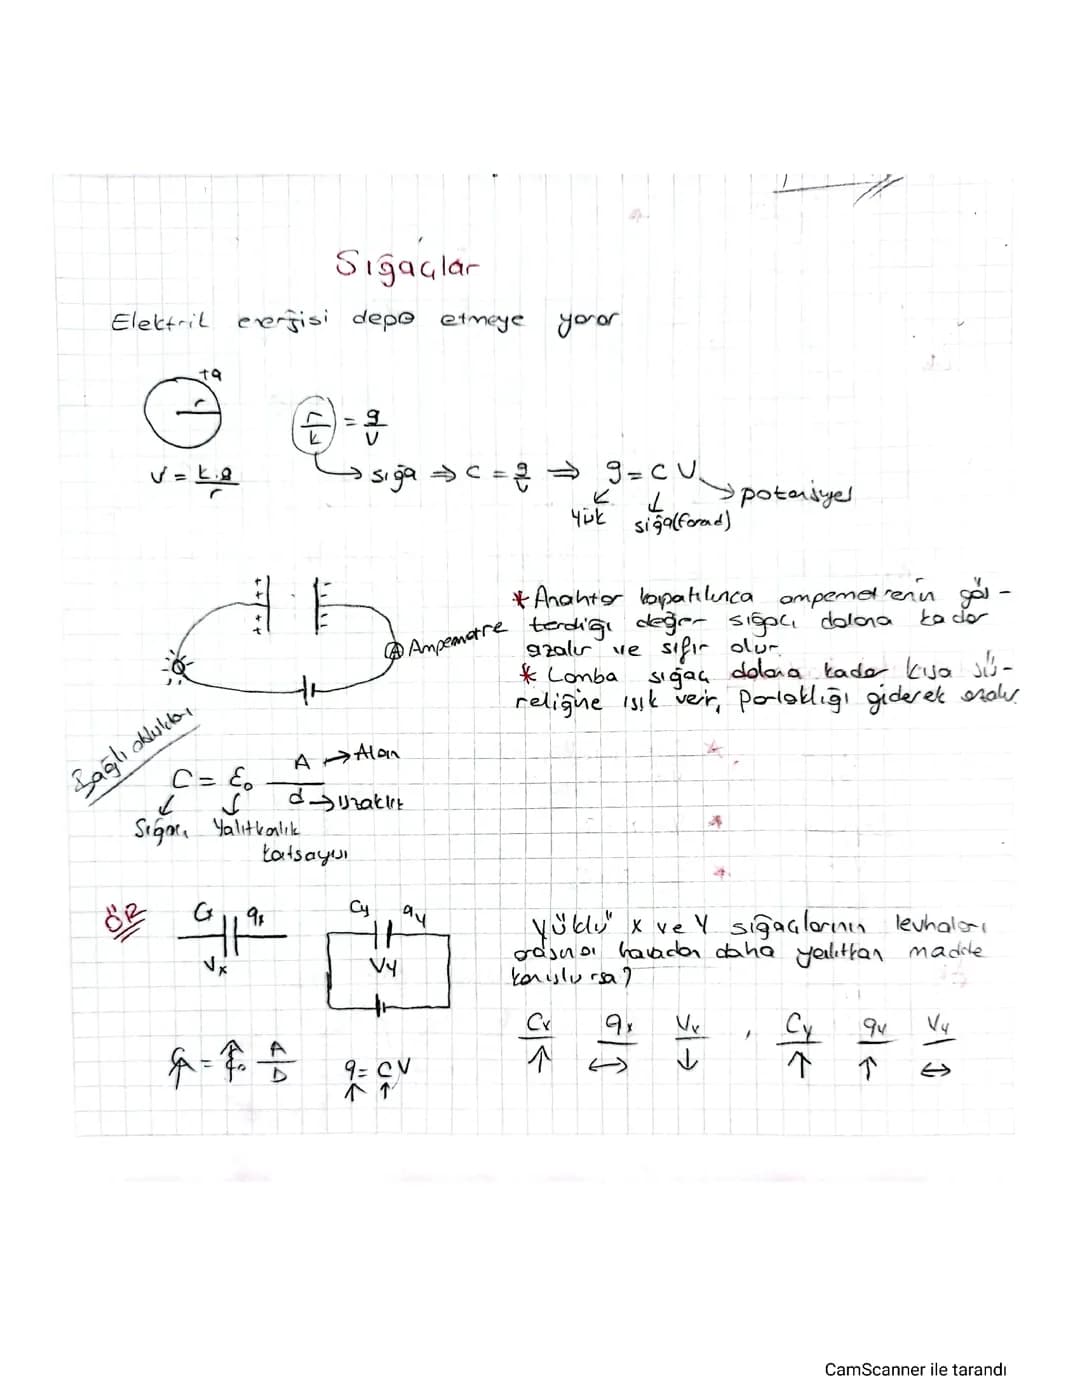 Sığaçlar
Elektrik enerjisi depo etmeye yarar
+q
r
r/k = q/V
V = k.q/r
sığa ⇒ C = q/V ⇒ q = C V
potansiyel
yük
sığa(farad)
+ + + + +
- - - -
* Anahtar kapatılınca ampemetrenin gös-
A Ampemetre
terdiği değer sığacı dolana kadar
azalır ve sıfır olur.
* Lamba sığaç dolana kadar kısa sü-
religine ışık verir, parlaklığı giderek azalır.
Bağlı oldukları
C = ε₀ A/d
A → Alan
d → uzaklık
Sığacı Yalıtkanlık
katsayısı
ÖR
Cx qx
Vx
Cy qy
Vy
Yüklü x ve y sığaçlarının levhaları
arasına havadan daha yalıtkan madde
konulursa?
Cx qx Vx , Cy qy Vy
↑ ↔ ↓ ↑ ↑ ↔
C↑ = ε₀↑ A/D
q = C V
↑ ↑
CamScanner ile tarandı